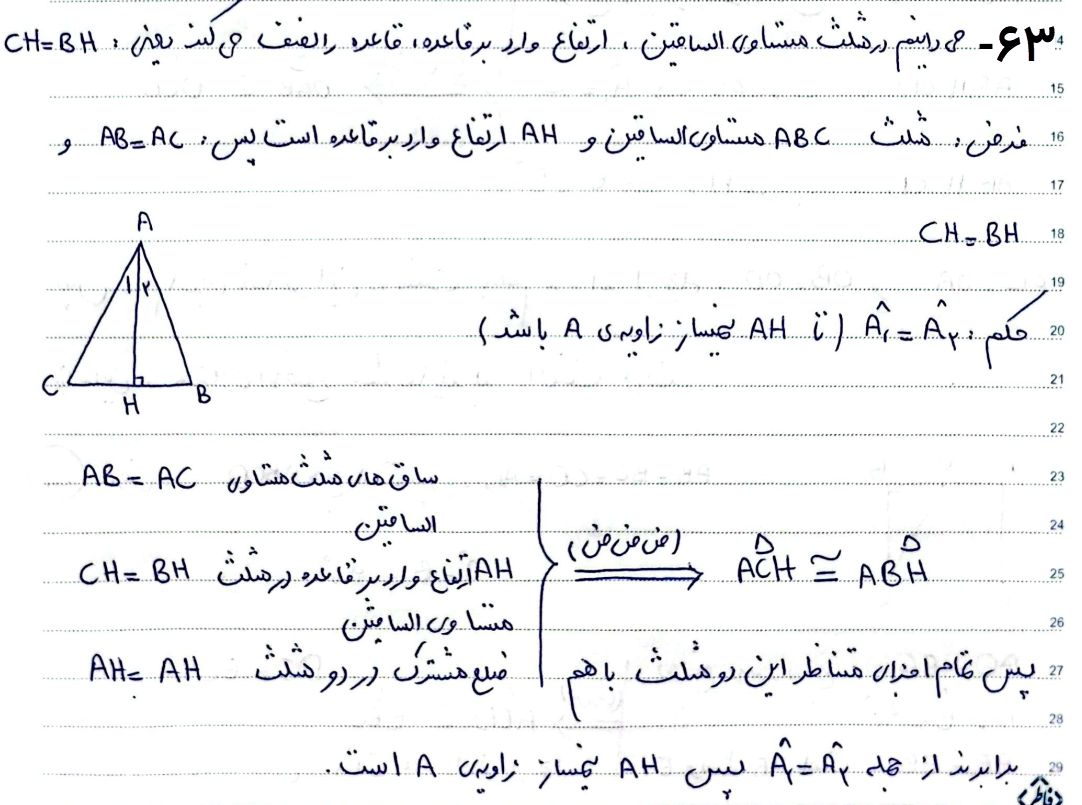 ۶۳- می دانیم در مثلث متساوی الساقین ، ارتفاع وارد بر قاعده، قاعده را نصف می کند یعنی : CH=BH
فرض : مثلث ABC متساوی الساقین و AH ارتفاع وارد بر قاعده است پس : AB=AC و
CH=BH
حکم : Â₁=Â₂ (تا AH نیمساز زاویه ی A باشد)
A
۱ ۲
C H B
AB = AC ساق های مثلث متساوی
الساقین
CH=BH AH ارتفاع وارد بر قاعده در مثلث
متساوی الساقین
AH= AH ضلع مشترک در دو مثلث
(ض ض ض)
ACH ≅ ABH
پس تمام اجزای متناظر این دو مثلث با هم
برابرند از جمله Â₁=Â₂ پس AH نیمساز زاویه ی A است.
14
15
16
17
18
19
20
21
22
23
24
25
26
27
28
29